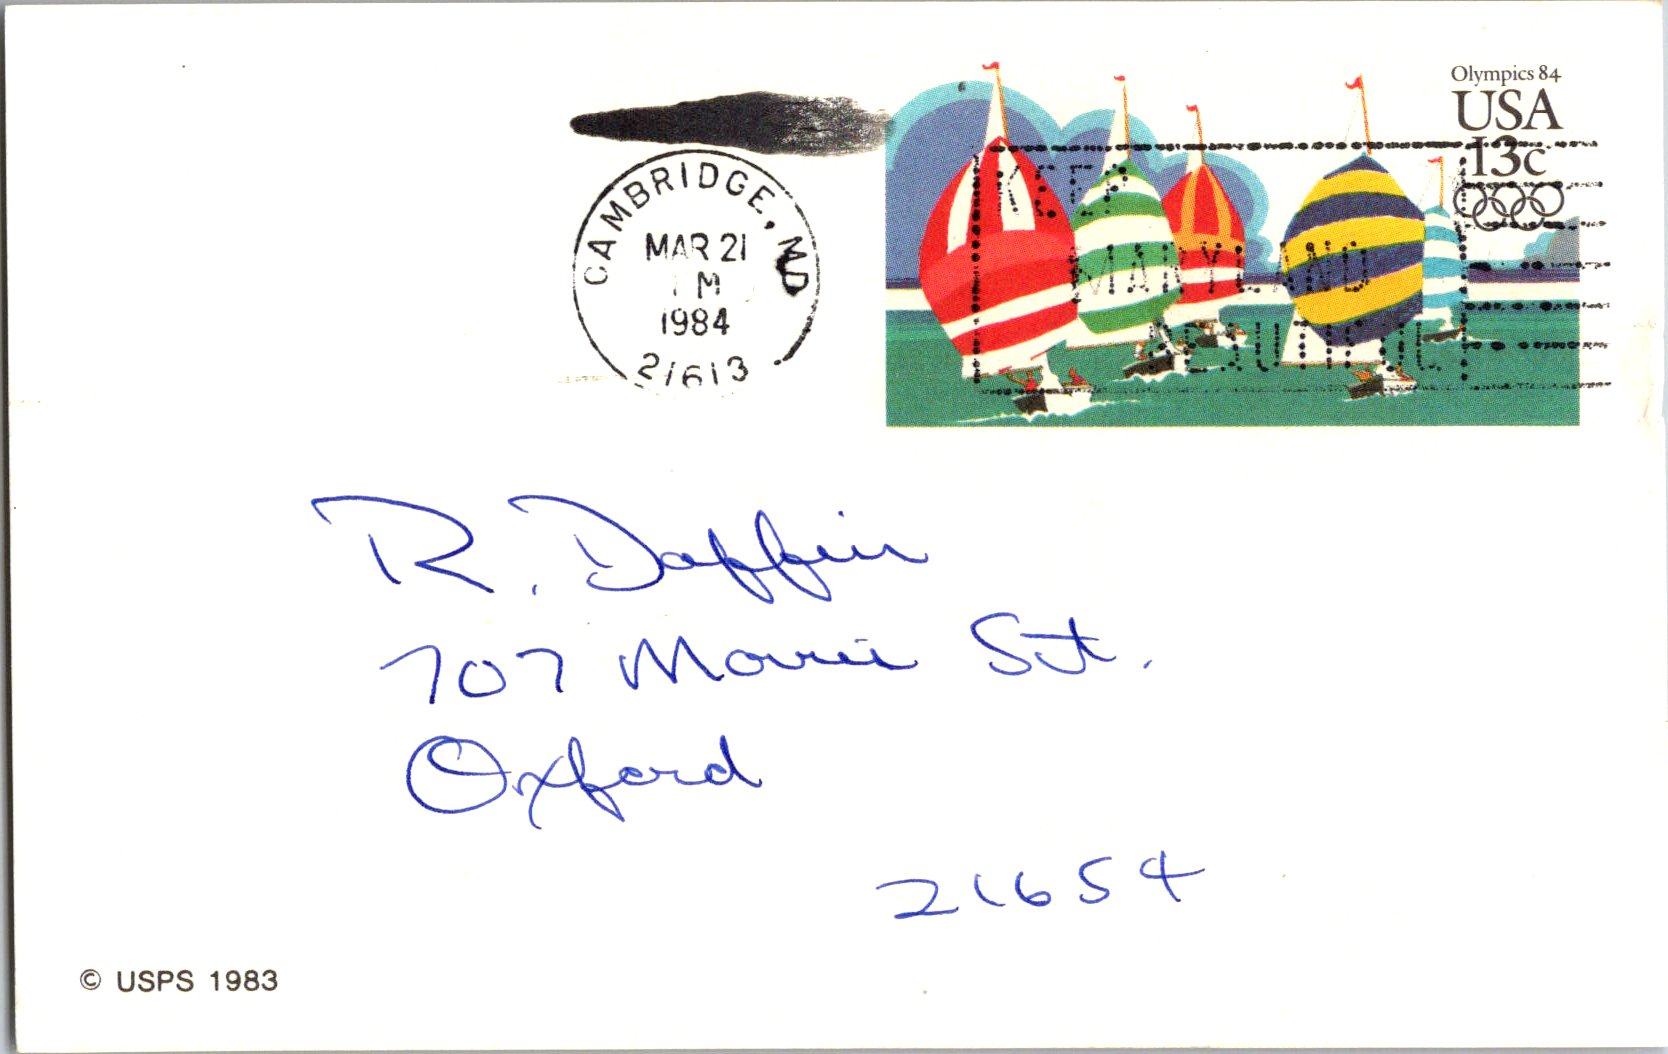 Olympics 84
USA
13c
CAMBRIDGE, MD
MAR 21
PM
1984
21613
KEEP
MARYLAND
BEAUTIFUL
R. Daffin
707 Morris St.
Oxford
21654
© USPS 1983